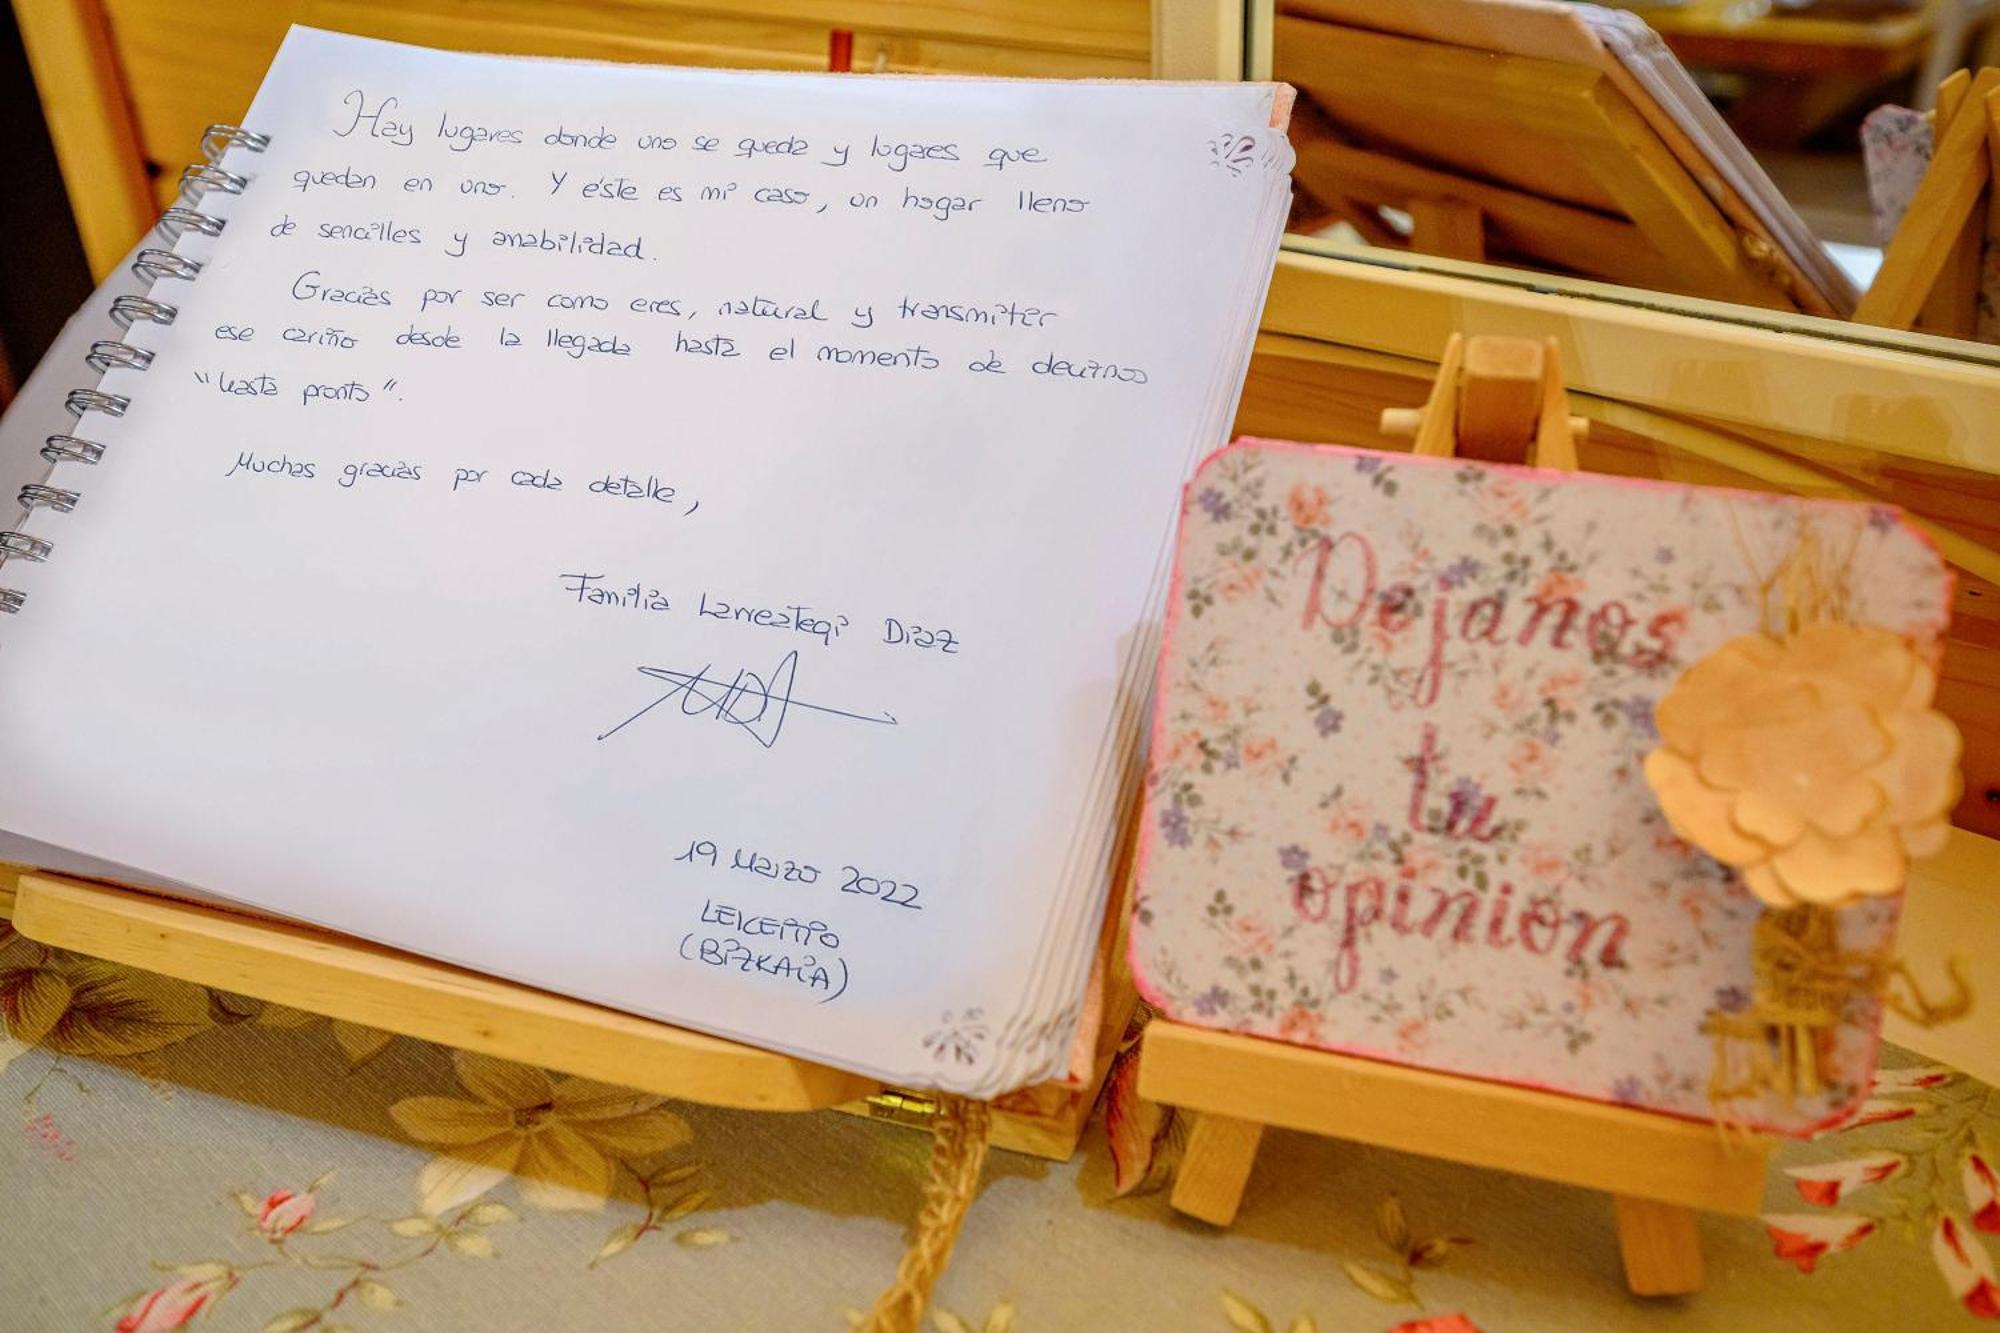 Hay lugares donde uno se queda y lugares que
quedan en uno. Y éste es mi caso, un hogar lleno
de sencilles y amabilidad.
Gracias por ser como eres, natural y transmitir
ese cariño desde la llegada hasta el momento de decirnos
"hasta pronto".
Muchas gracias por cada detalle,
Familia Larreategi Diaz
19 Marzo 2022
(BIZKAIA)
Dejanos
tu
opinion